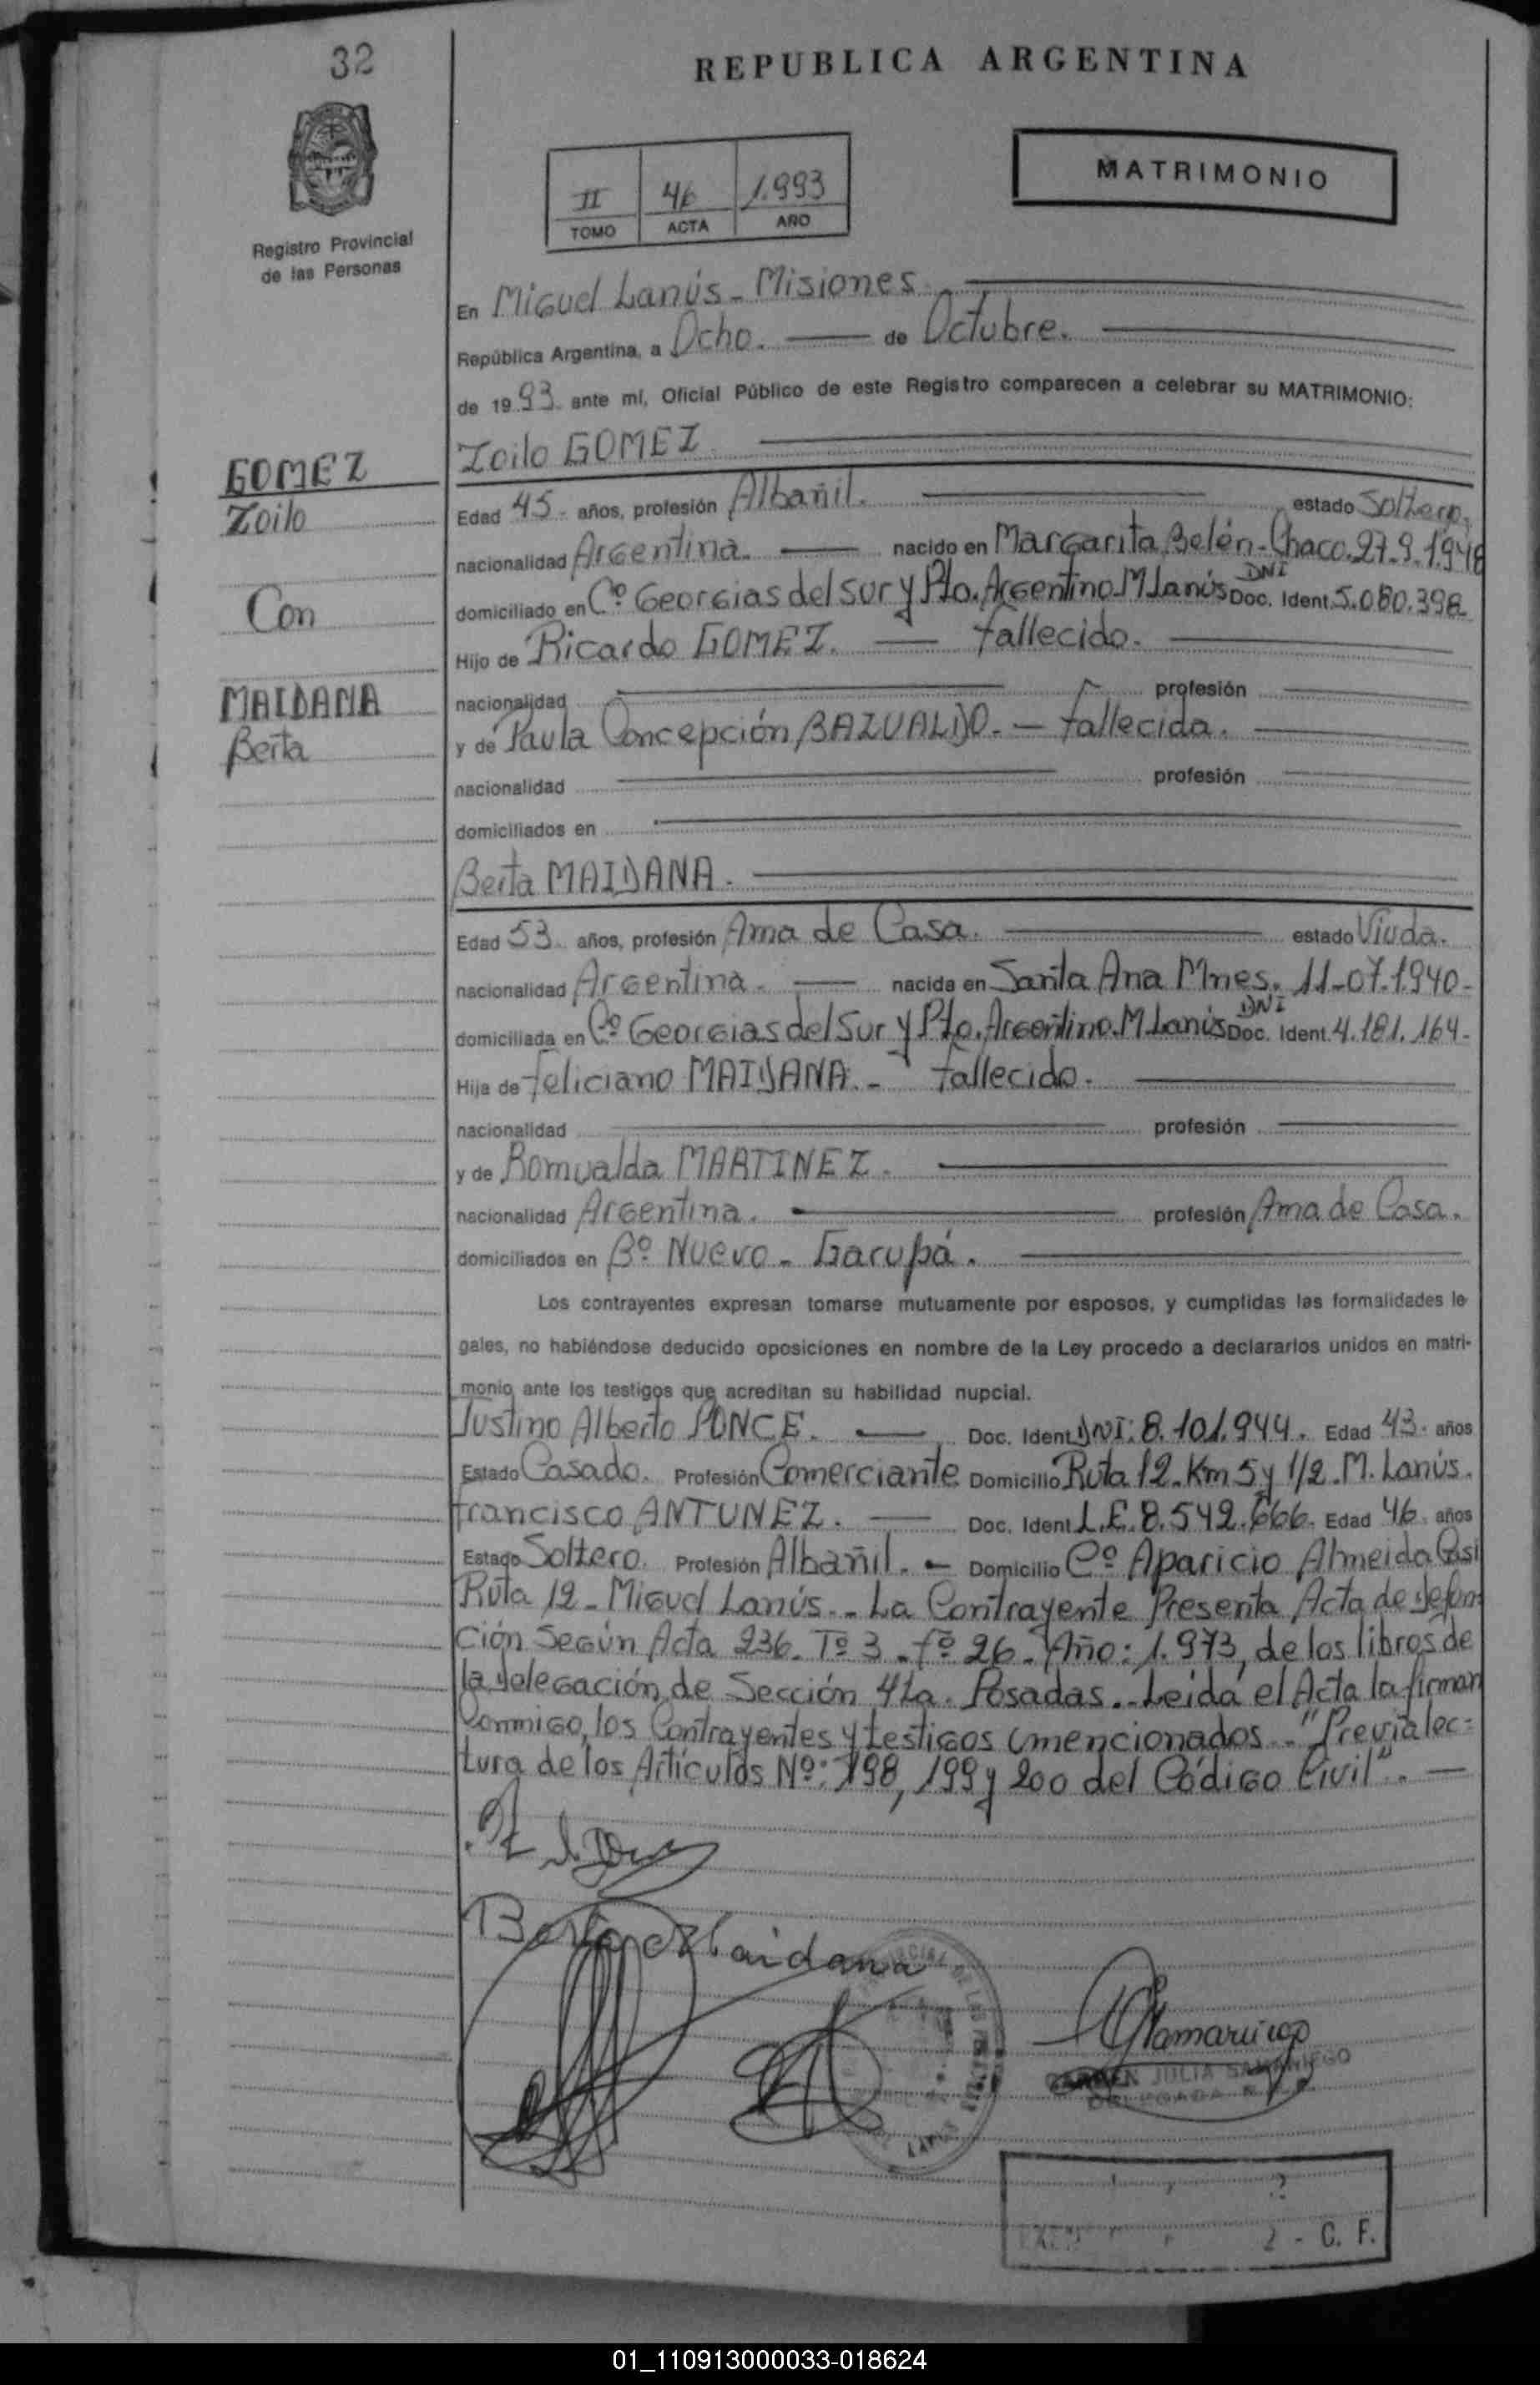 32
REPUBLICA ARGENTINA
MATRIMONIO
II 46 1.993
TOMO ACTA AÑO
Registro Provincial
de las Personas
En Miguel Lanús - Misiones.
República Argentina, a Ocho. de Octubre.
de 1993. ante mí, Oficial Público de este Registro comparecen a celebrar su MATRIMONIO:
Zoilo GOMEZ
GOMEZ
Zoilo
Con
MAIDANA
Berta
Edad 45- años, profesión Albañil. estado Soltero.
nacionalidad Argentina. nacido en Margarita Belén-Chaco.27.9.1.948
domiciliado en Cº Georgias del Sur y Pto. Argentino.M Lanús DNI Doc. Ident. 5.080.398
Hijo de Ricardo GOMEZ. fallecido.
nacionalidad profesión
y de Paula Concepción BAZUALDO. - fallecida.
nacionalidad profesión
domiciliados en
Berta MAIDANA.
Edad 53 años, profesión Ama de Casa. estado Viuda.
nacionalidad Argentina. nacida en Santa Ana Mnes. 11-07-1.940-
domiciliada en Cº Georgias del Sur y Pto. Argentino.M Lanús DNI Doc. Ident. 4.181.164-
Hija de Feliciano MAIDANA. - fallecido.
nacionalidad profesión
y de Romualda MARTINEZ.
nacionalidad Argentina. profesión Ama de Casa.
domiciliados en Bº Nuevo - Garupá.
Los contrayentes expresan tomarse mutuamente por esposos, y cumplidas las formalidades le
gales, no habiéndose deducido oposiciones en nombre de la Ley procedo a declararlos unidos en matri-
monio ante los testigos que acreditan su habilidad nupcial.
Justino Alberto PONCE. Doc. Ident DNI: 8.101.944. Edad 43. años
Estado Casado. Profesión Comerciante Domicilio Ruta 12-Km 5 y 1/2.M. Lanús.
Francisco ANTUNEZ. Doc. Ident L.E. 8.542.666. Edad 46. años
Estado Soltero. Profesión Albañil. - Domicilio Cº Aparicio Almeida Casi
Ruta 12 - Miguel Lanús. - La Contrayente Presenta Acta de Defun-
ción Según Acta 236. Tº 3 - fº 26 - Año: 1.973, de los libros de
la Delegación de Sección 4ta. Posadas. - Leída el Acta la firman
Conmigo, los Contrayentes y testigos mencionados - "Previa lec-
tura de los Artículos Nº: 198, 199 y 200 del Código Civil". -
Berta Maidana
CARMEN JULIA SAMANIEGO
DELEGADA
- C. F.
01_110913000033-018624